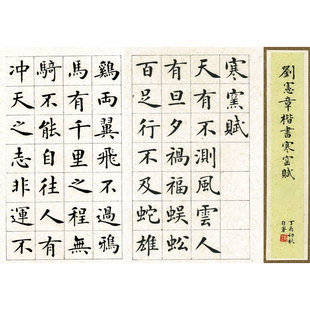 劉憲章楷書寒窑賦
寒窯賦
天有不測風雲人
有旦夕禍福蜈蚣
百足行不及蛇雄
鷄兩翼飛不過鴉
馬有千里之程無
騎不能自往人有
冲天之志非運不